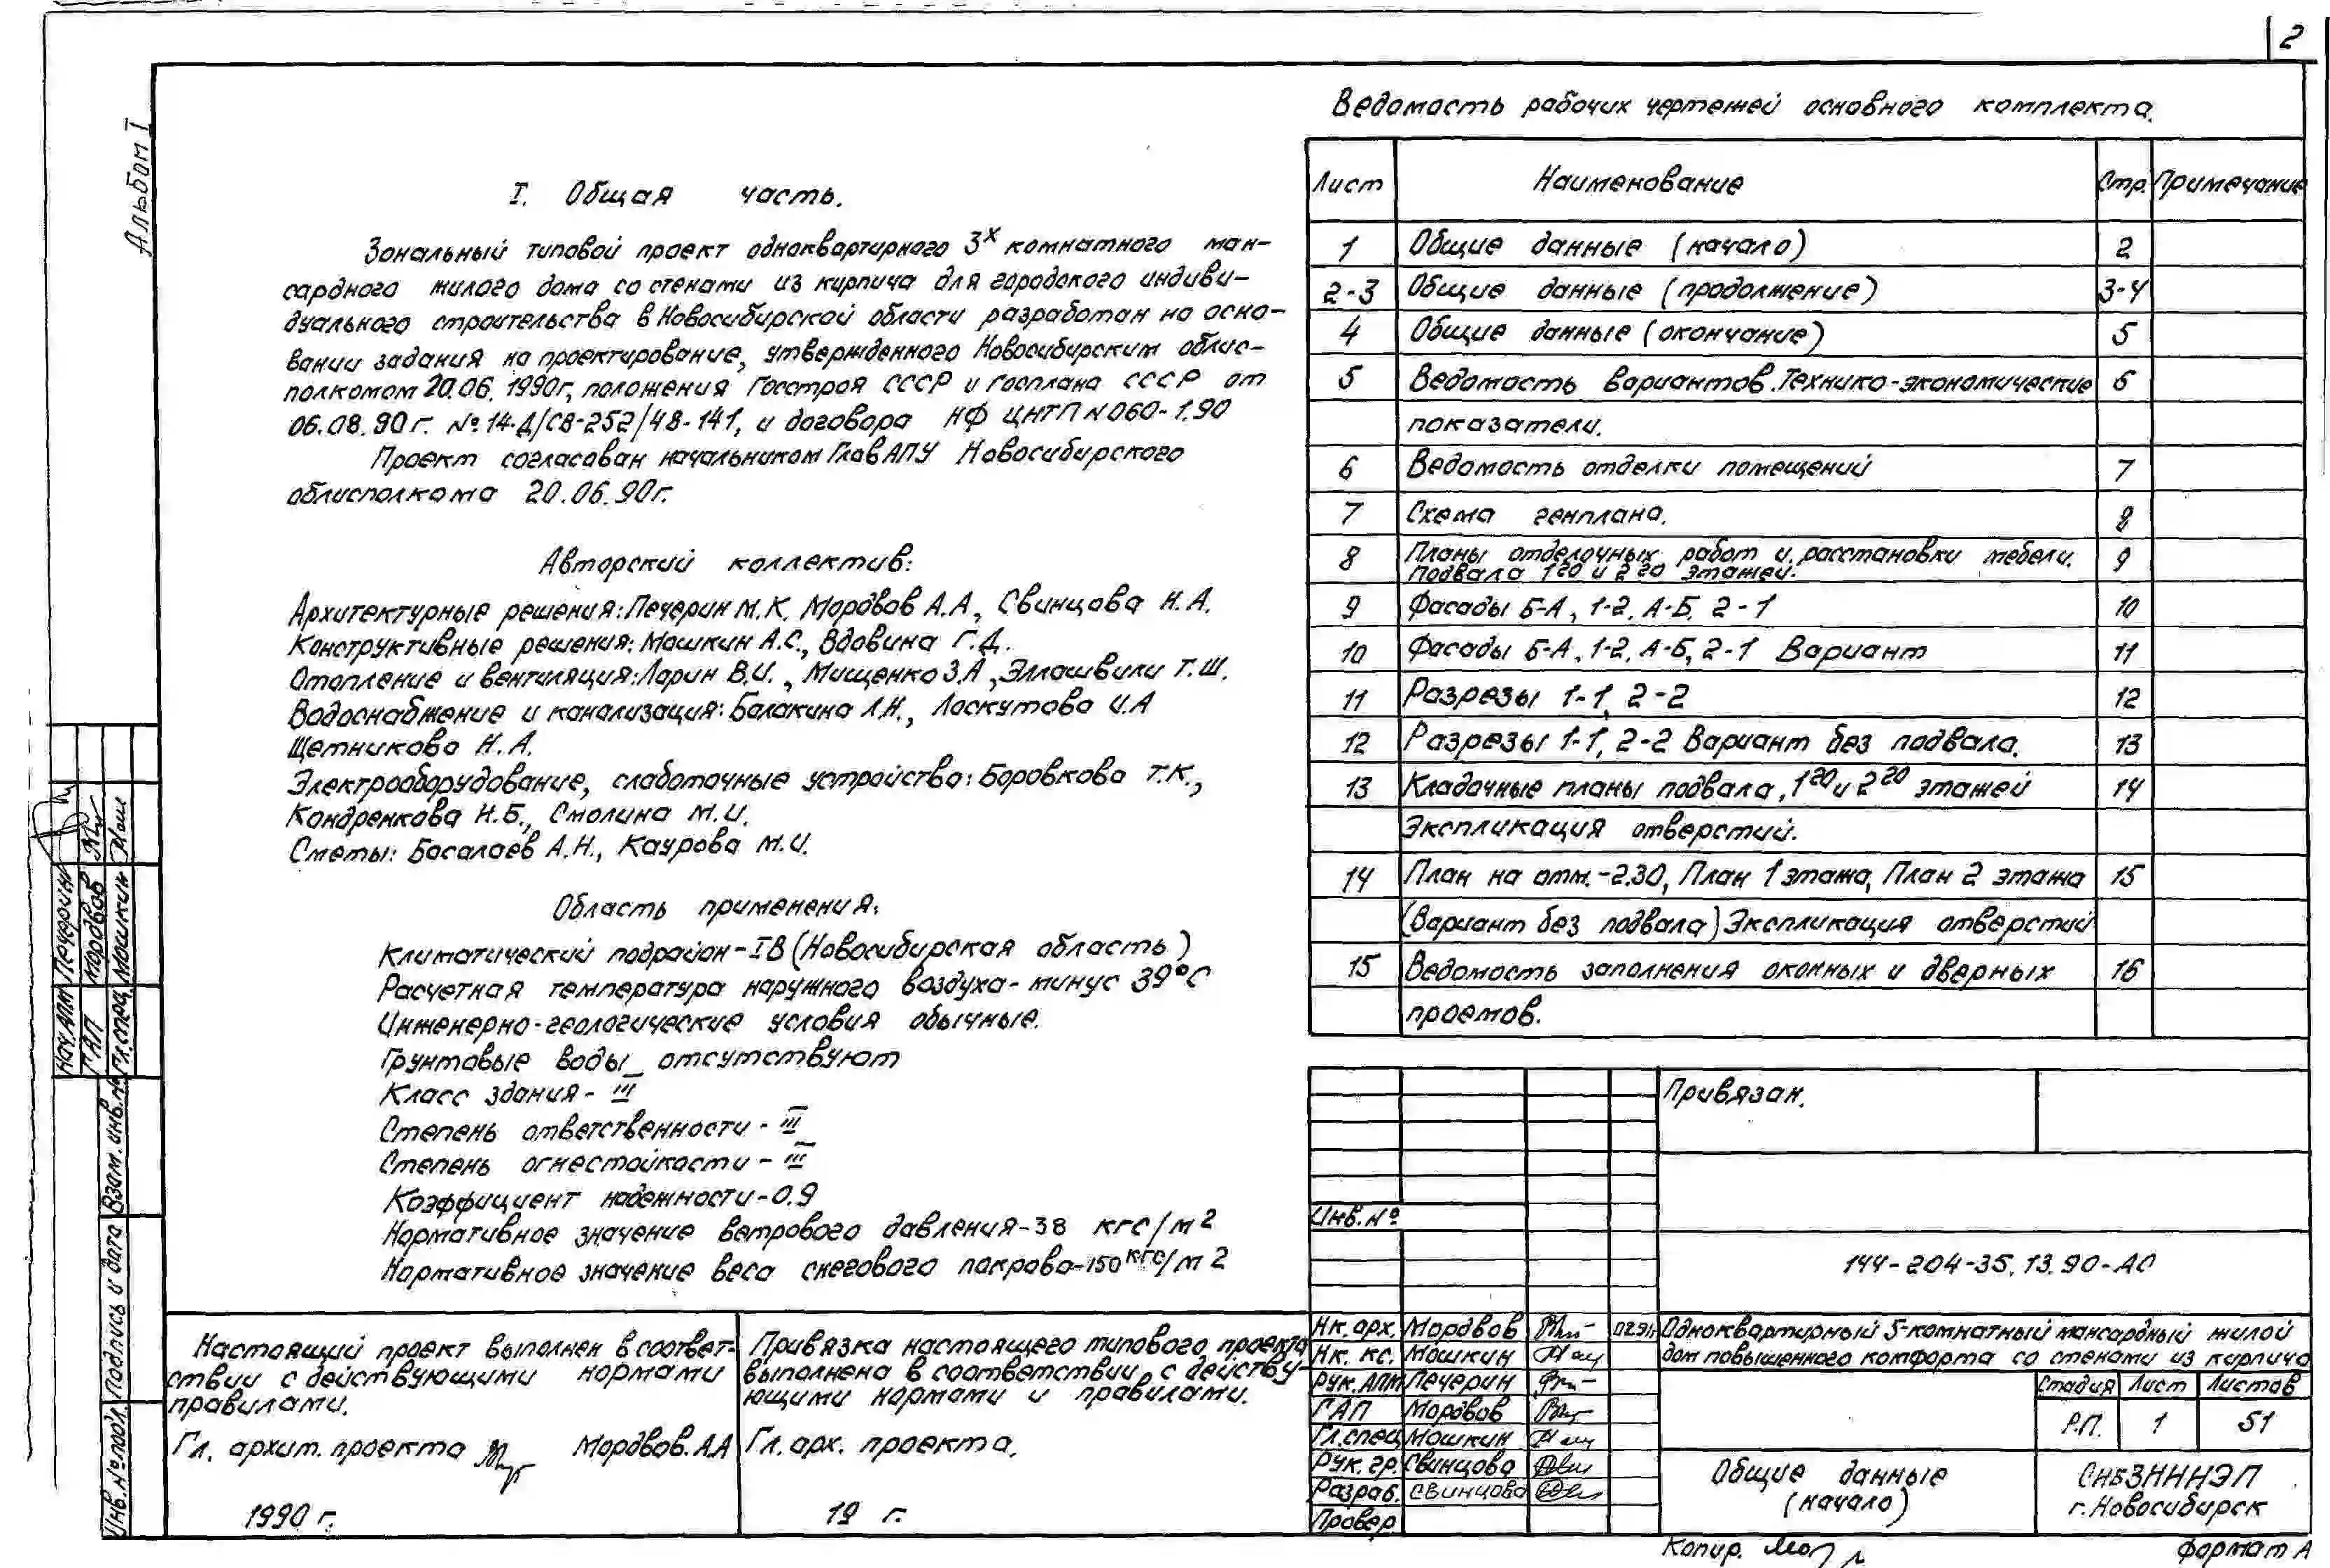 2
Альбом I
I. Общая часть.
Зональный типовой проект одноквартирного 3х комнатного ман-
сардного жилого дома со стенами из кирпича для городского индиви-
дуального строительства в Новосибирской области разработан на осно-
вании задания на проектирование, утвержденного Новосибирским облис-
полкомом 20.06. 1990г, положения Госстроя СССР и Госплана СССР от
06.08.90 г. №14-Д/СВ-252/48-141, и договора НФ ЦНТП N060-1.90
Проект согласован начальником ГлавАПУ Новосибирского
облисполкома 20.06.90г.
Авторский коллектив:
Архитектурные решения: Печерин М.К. Мордвов А.А, Свинцова Н.А.
Конструктивные решения: Мошкин А.С., Вдовина Г.Д.
Отопление и вентиляция: Ларин В.И., Мищенко З.А, Эллашвили Т.Ш.
Водоснабжение и канализация: Балакина Л.Н., Лоскутова И.А
Щетникова Н.А.
Электрооборудование, слаботочные устройства: Боровкова Т.К.,
Кондренкова Н.Б., Смолина М.И.
Сметы: Басалаев А.Н., Каурова М.И.
Область применения:
Климатический подрайон - IВ (Новосибирская область)
Расчетная температура наружного воздуха - минус 39°С
Инженерно-геологические условия обычные.
Грунтовые воды _ отсутствуют
Класс здания - III
Степень ответственности - III
Степень огнестойкости - III
Коэффициент надежности - 0.9
Нормативное значение ветрового давления - 38 кгс/м2
Нормативное значение веса снегового покрова - 150 кгс/м2
Настоящий проект выполнен в соответ-
ствии с действующими нормами
правилами.
Гл. архит. проекта Мордвов.АА
1990 г.
Привязка настоящего типового проекта
выполнена в соответствии с действу-
ющими нормами и правилами.
Гл. арх. проекта.
19 г.
Ведомость рабочих чертежей основного комплекта.
Лист Наименование Стр. Примечание
1 Общие данные (начало) 2
2-3 Общие данные (продолжение) 3-4
4 Общие данные (окончание) 5
5 Ведомость вариантов. Технико-экономические 6
показатели.
6 Ведомость отделки помещений 7
7 Схема генплана. 8
8 Планы отделочных работ и расстановки мебели. 9
подвала 1го и 2го этажей.
9 Фасады Б-А, 1-2, А-Б, 2-1 10
10 Фасады Б-А, 1-2, А-Б, 2-1 Вариант 11
11 Разрезы 1-1, 2-2 12
12 Разрезы 1-1, 2-2 Вариант без подвала. 13
13 Кладочные планы подвала, 1го и 2го этажей 14
Экспликация отверстий.
14 План на отм. -2.30, План 1 этажа, План 2 этажа 15
(Вариант без подвала) Экспликация отверстий
15 Ведомость заполнения оконных и дверных 16
проемов.
Привязан.
Инв. №
144-204-35.13.90-АС
Нк. арх. Мордвов 02.91г.
Нк. кс. Мошкин
Рук. АПМ Печерин
ГАП Мордвов
Гл. спец Мошкин
Рук. гр. Свинцова
Разраб. Свинцова
Провер
Одноквартирный 5-комнатный мансардный жилой
дом повышенного комфорта со стенами из кирпича
Стадия Лист Листов
Р.П. 1 51
Общие данные
(начало)
г. Новосибирск
Копир.
Формат А
Нач. АПМ Печерин
ГАП Мордвов
Гл. спец. Мошкин
Взам. инв. №
Подпись и дата
Инв. № подл.